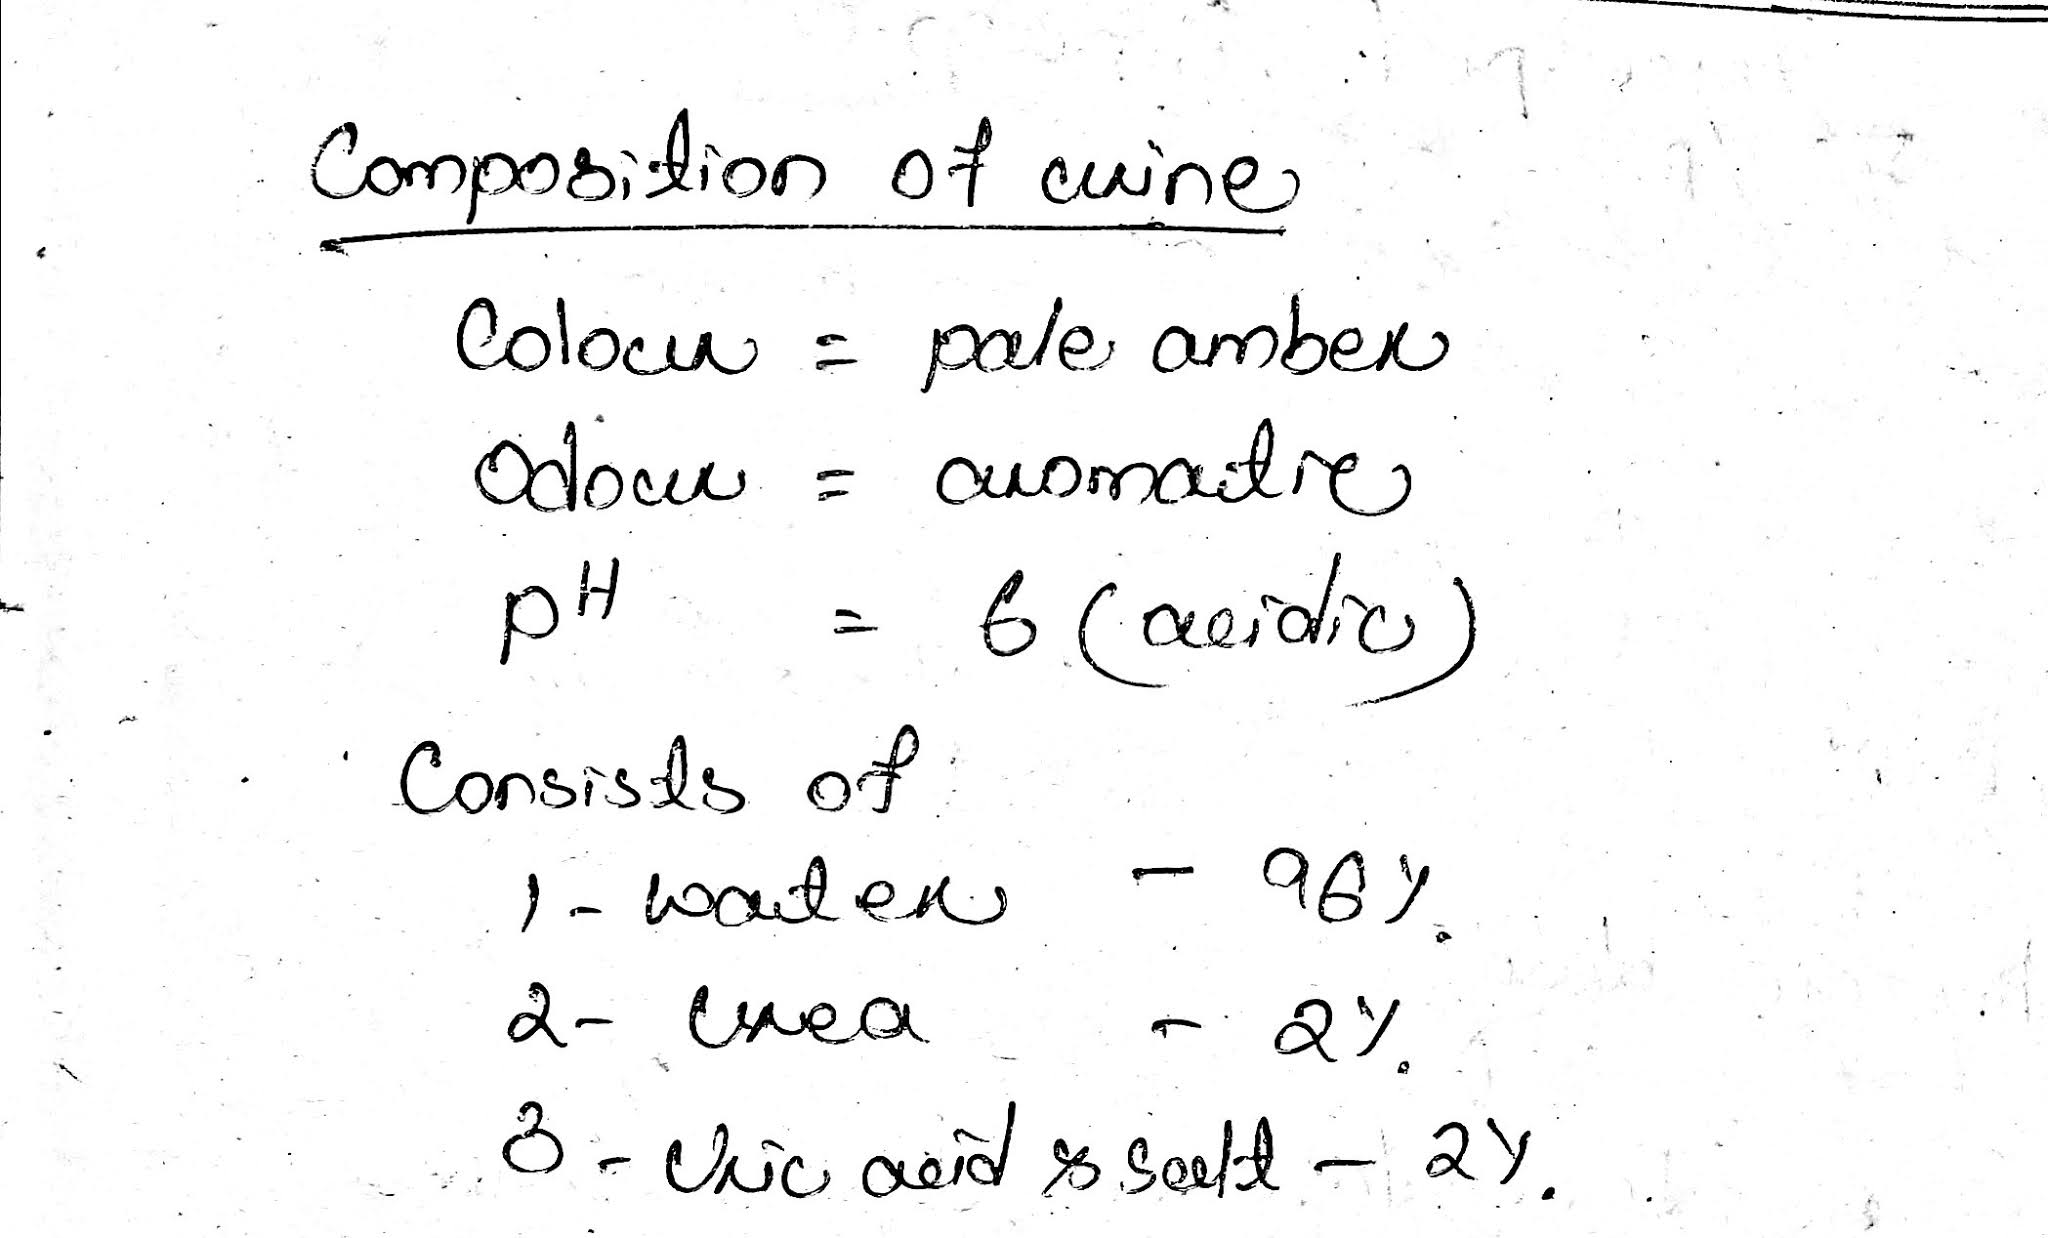 Composition of urine
Colour = pale amber
Odour = aromatic
pH = 6 (acidic)
Consists of
1- water - 96%
2- urea - 2%
3- Uric acid & salt - 2%